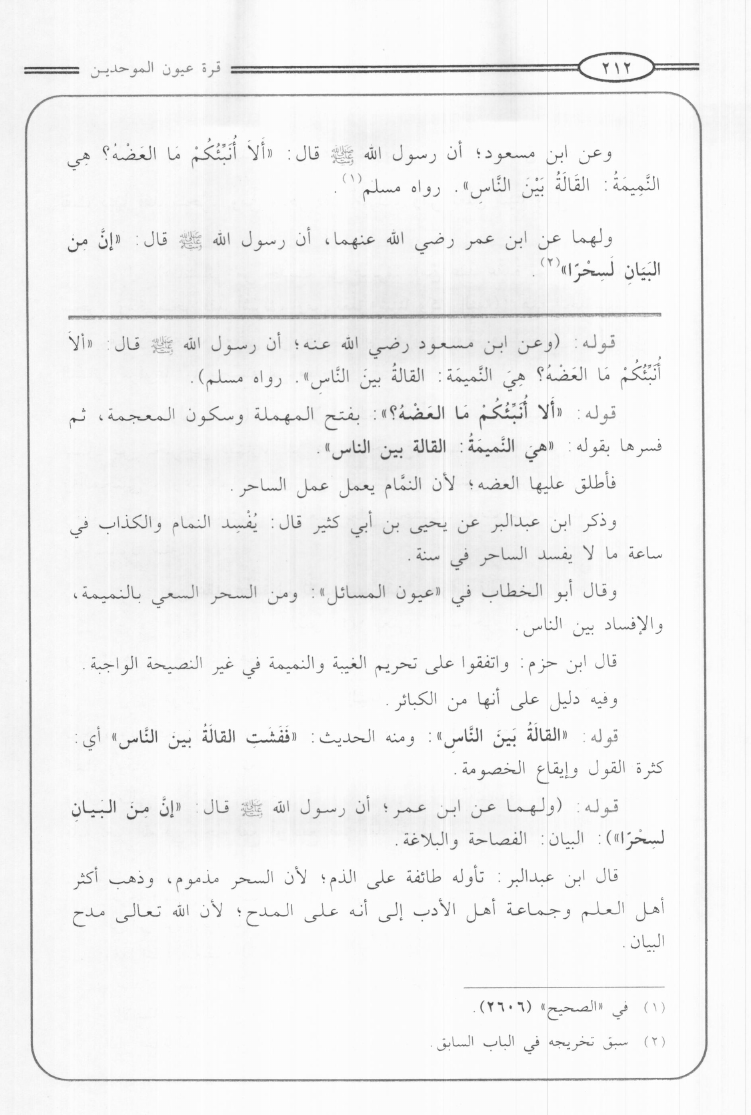 ٢١٢ قرة عيون الموحدين
وعن ابن مسعود؛ أن رسول الله ﷺ قال: «أَلاَ أُنَبِّئُكُمْ مَا العَضْهُ؟ هِي
النَّمِيمَةُ: القَالَةُ بَيْنَ النَّاسِ». رواه مسلم(١).
ولهما عن ابن عمر رضي الله عنهما، أن رسول الله ﷺ قال: «إنَّ مِن
البَيَانِ لَسِحْرًا»(٢).
قوله: (وعن ابن مسعود رضي الله عنه؛ أن رسول الله ﷺ قال: «ألاَ
أُنَبِّئُكُمْ مَا العَضَهُ؟ هِيَ النَّميمَة: القالةُ بينَ النَّاسِ». رواه مسلم).
قوله: «ألا أُنَبِّئُكُمْ مَا العَضْهُ؟»: بفتح المهملة وسكون المعجمة، ثم
فسرها بقوله: «هيَ النَّميمَةُ: القالة بين الناس».
فأطلق عليها العضه؛ لأن النمَّام يعمل عمل الساحر.
وذكر ابن عبدالبر عن يحيى بن أبي كثير قال: يُفْسِد النمام والكذاب في
ساعة ما لا يفسد الساحر في سنة.
وقال أبو الخطاب في «عيون المسائل»: ومن السحر السعي بالنميمة،
والإفساد بين الناس.
قال ابن حزم: واتفقوا على تحريم الغيبة والنميمة في غير النصيحة الواجبة.
وفيه دليل على أنها من الكبائر.
قوله: «القالَةُ بَينَ النَّاسِ»: ومنه الحديث: «فَفَشَتِ القالَةُ بينَ النَّاس» أي:
كثرة القول وإيقاع الخصومة.
قوله: (ولهما عن ابن عمر؛ أن رسول الله ﷺ قال: «إنَّ مِنَ البَيانِ
لسِحْرًا»): البيان: الفصاحة والبلاغة.
قال ابن عبدالبر: تأوله طائفة على الذم؛ لأن السحر مذموم، وذهب أكثر
أهل العلم وجماعة أهل الأدب إلى أنه على المدح؛ لأن الله تعالى مدح
البيان.
(١) في «الصحيح» (٢٦٠٦).
(٢) سبق تخريجه في الباب السابق.